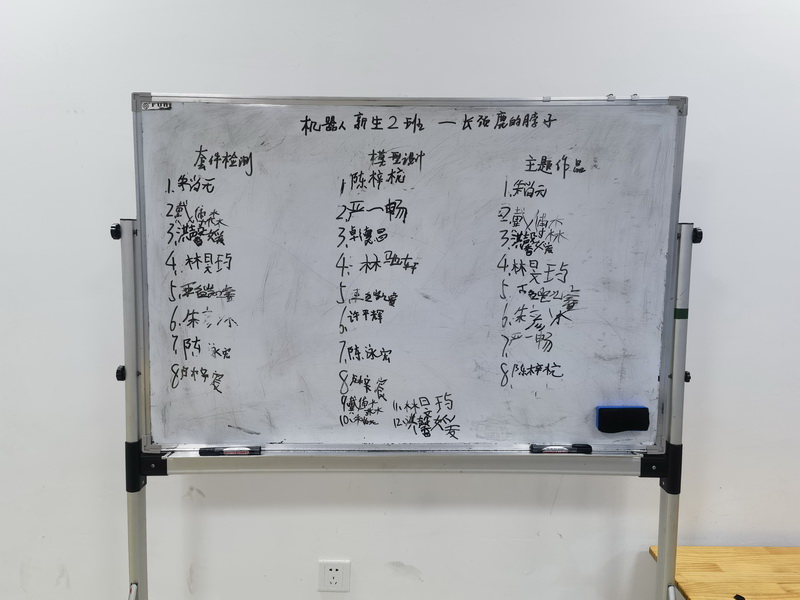 机器人新生2班 一长颈鹿的脖子
套件检测
1.朱尚元
2.戴
3.洪馨媛
4.林昊玙
5.
6.朱彦冰
7.陈泳宏
8.
模型设计
1.陈梓杭
2.严一畅
3.卓
4.林
5.
6.许平辉
7.陈泳宏
8.
9.戴
10.
11.林昊玙
12.洪馨媛
主题作品
1.朱尚元
2.戴
3.洪馨媛
4.林昊玙
5.
6.朱彦冰
7.严一畅
8.陈梓杭